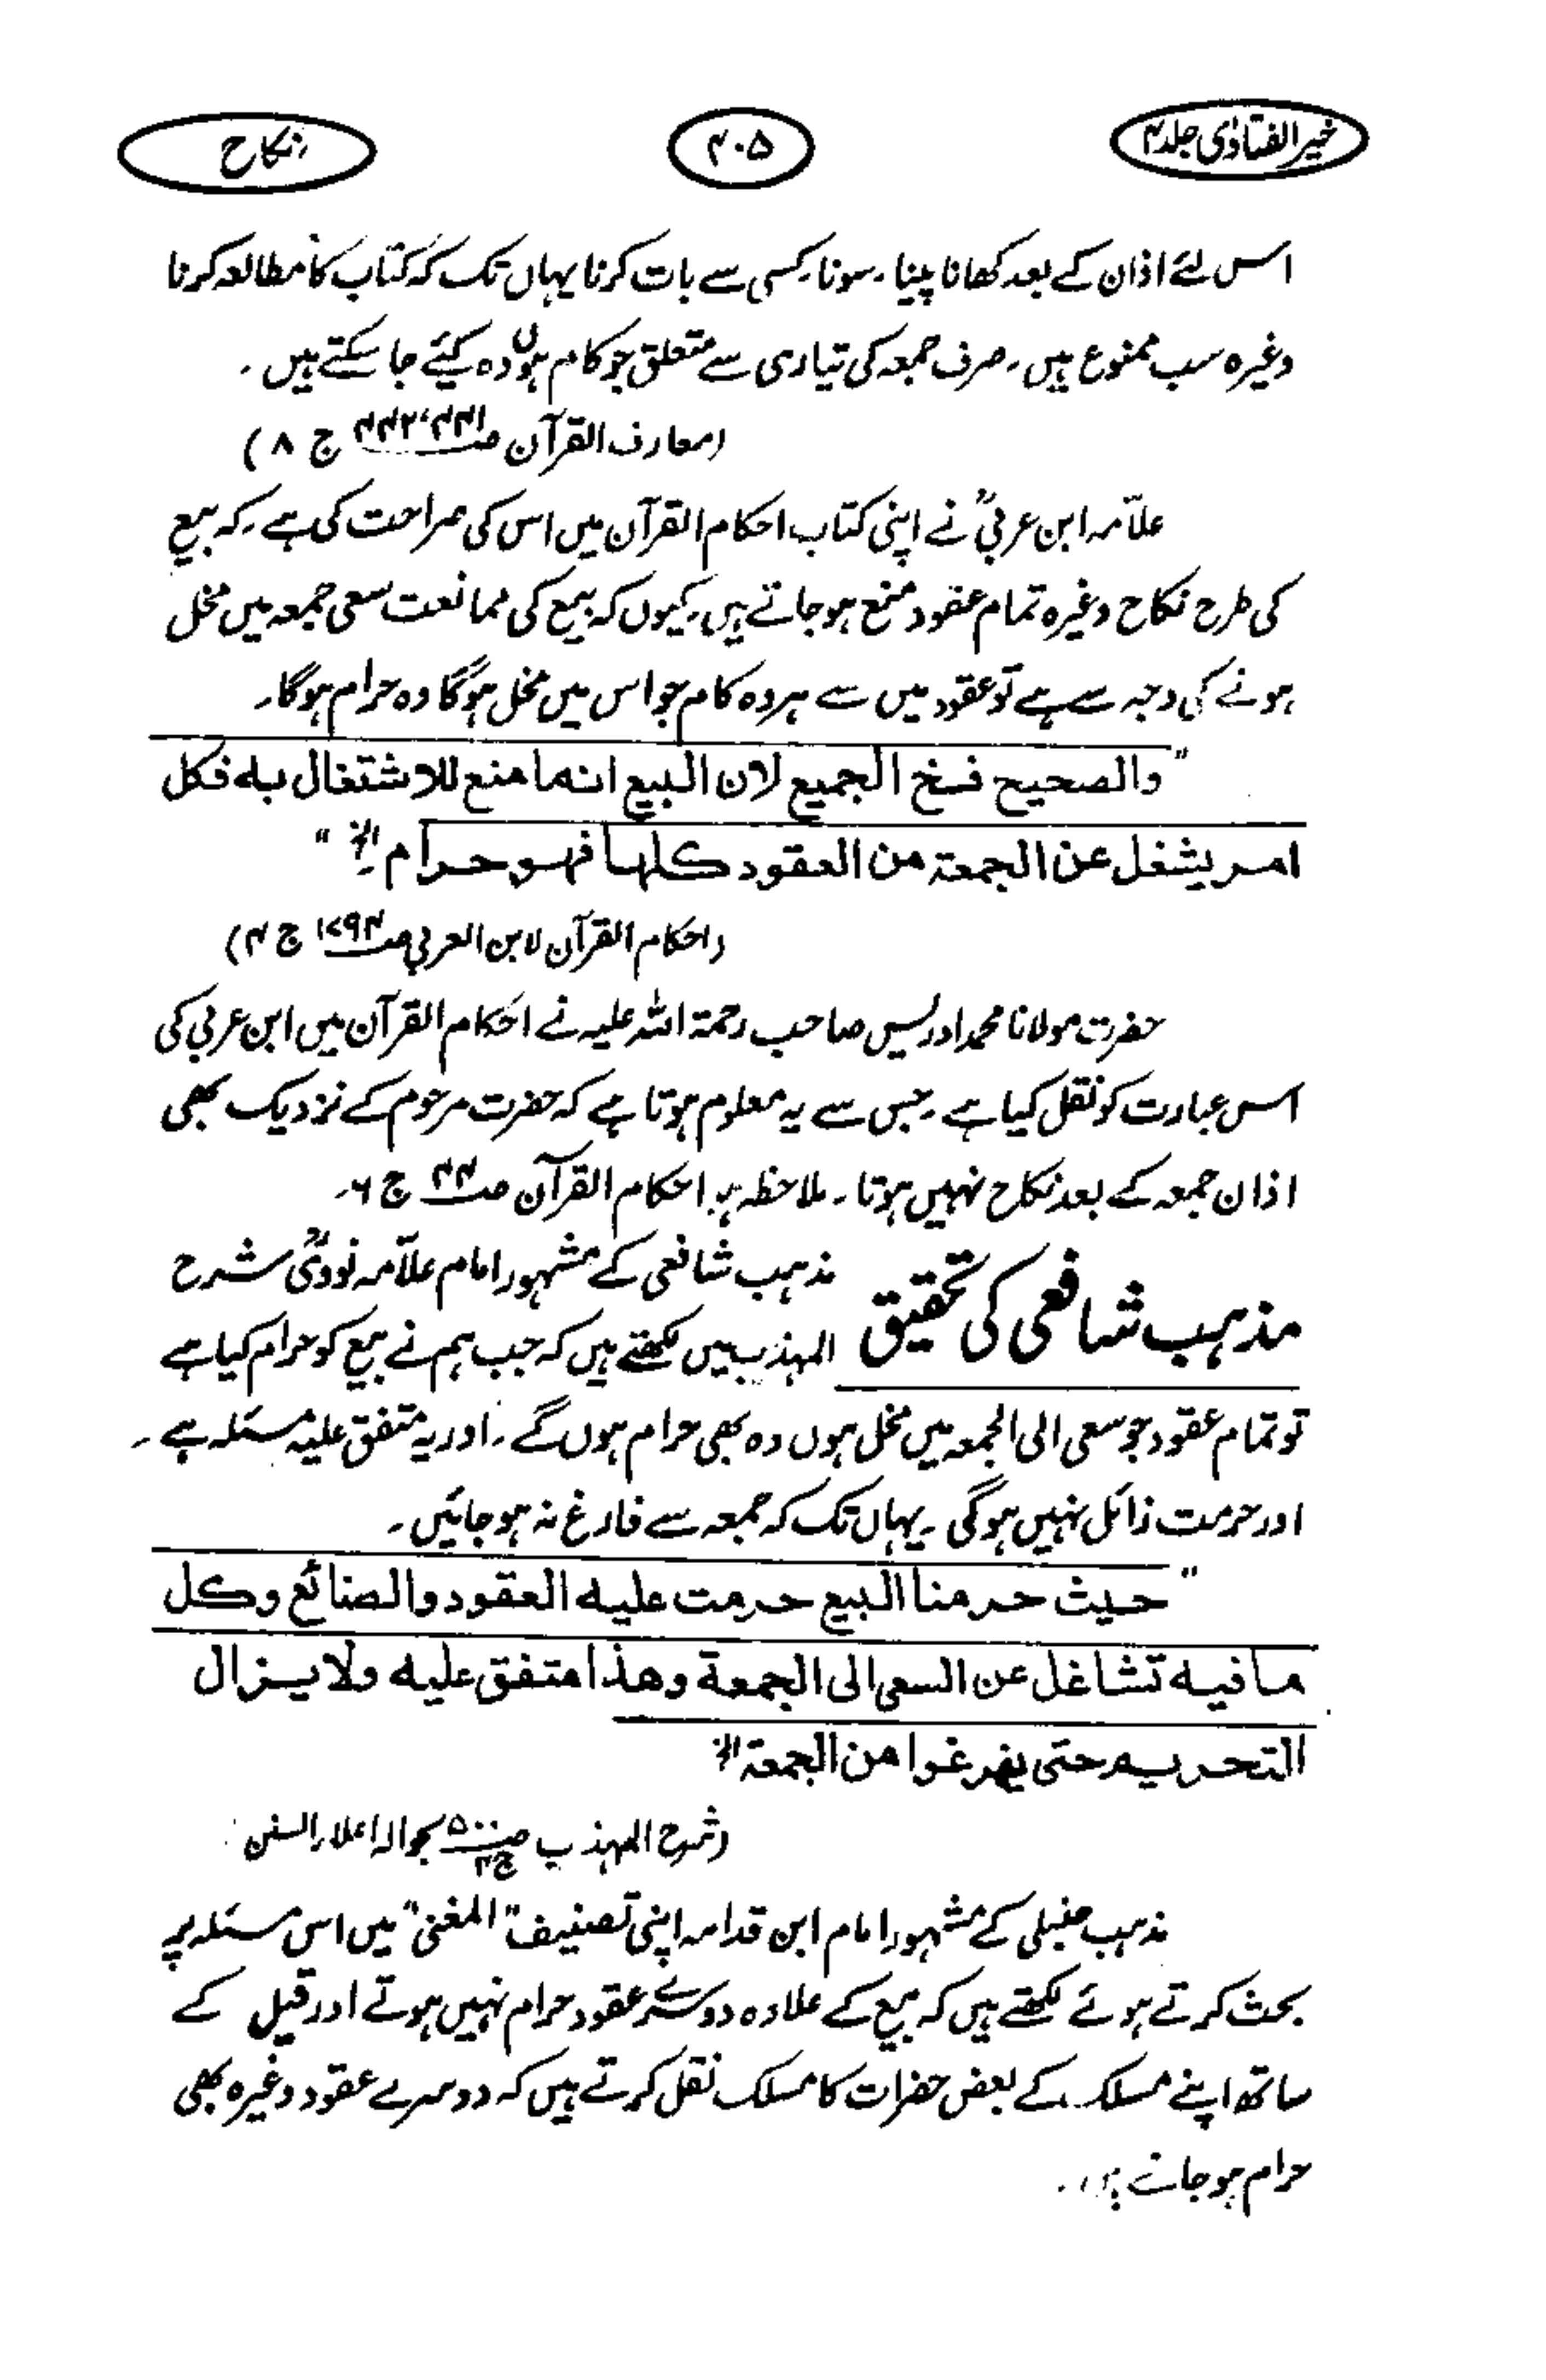 خیر الفتاویٰ جلد ۴
۴۰۵
نکاح
اس لئے اذان کے بعد کھانا پینا، سونا، کسی سے بات کرنا یہاں تک کہ کتاب کا مطالعہ کرنا
وغیرہ سب ممنوع ہیں، صرف جمعہ کی تیاری سے متعلق جو کام ہوں وہ کیئے جا سکتے ہیں۔
(معارف القرآن صـ ۴۴۱، ۴۴۲ ج ۸)
علامہ ابن عربیؒ نے اپنی کتاب احکام القرآن میں اس کی صراحت کی ہے، کہ بیع
کی طرح نکاح وغیرہ تمام عقود منع ہو جاتے ہیں، کیوں کہ بیع کی ممانعت سعی جمعہ میں مخل
ہونے کی وجہ سے ہے تو عقود میں سے ہر وہ کام جو اس میں مخل ہوگا وہ حرام ہوگا۔
"والصحيح فسخ الجميع لان البيع انما منع للاشتغال به فكل
امر يشغل عن الجمعة من العقود كلها فهو حرام الخ"
(احکام القرآن لابن العربی صـ ۱۷۹۴ ج ۴)
حضرت مولانا محمد ادریس صاحب رحمۃ اللہ علیہ نے احکام القرآن میں ابن عربی کی
اس عبارت کو نقل کیا ہے، جس سے یہ معلوم ہوتا ہے کہ حضرت مرحوم کے نزدیک بھی
اذان جمعہ کے بعد نکاح نہیں ہوتا۔ ملاحظہ ہو احکام القرآن صـ ۴۴ ج ۶۔
مذہب شافعی کی تحقیق
مذہب شافعی کے مشہور امام علامہ نوویؒ شرح
المہذب میں لکھتے ہیں کہ جب ہم نے بیع کو حرام کیا ہے
تو تمام عقود جو سعی الی الجمعہ میں مخل ہوں وہ بھی حرام ہوں گے، اور یہ متفق علیہ مسئلہ ہے۔
اور حرمت زائل نہیں ہوگی۔ یہاں تک کہ جمعہ سے فارغ نہ ہو جائیں۔
"حيث حرمنا البيع حرمت عليه العقود والصنائع وكل
ما فيه تشاغل عن السعى الى الجمعة وهذا متفق عليه ولا يزال
التحريم حتى يفرغوا من الجمعة الخ
(شرح المہذب صـ ۵۰۰ ج ۴ بحوالہ اعلاء السنن
مذہب حنبلی کے مشہور امام ابن قدامہ اپنی تصنیف "المغنی" میں اس مسئلہ پر
بحث کرتے ہوئے لکھتے ہیں کہ بیع کے علاوہ دوسرے عقود حرام نہیں ہوتے اور قیل کے
ساتھ اپنے مسلک کے بعض حضرات کا مسلک نقل کرتے ہیں کہ دوسرے عقود وغیرہ بھی
حرام ہو جاتے ہیں۔